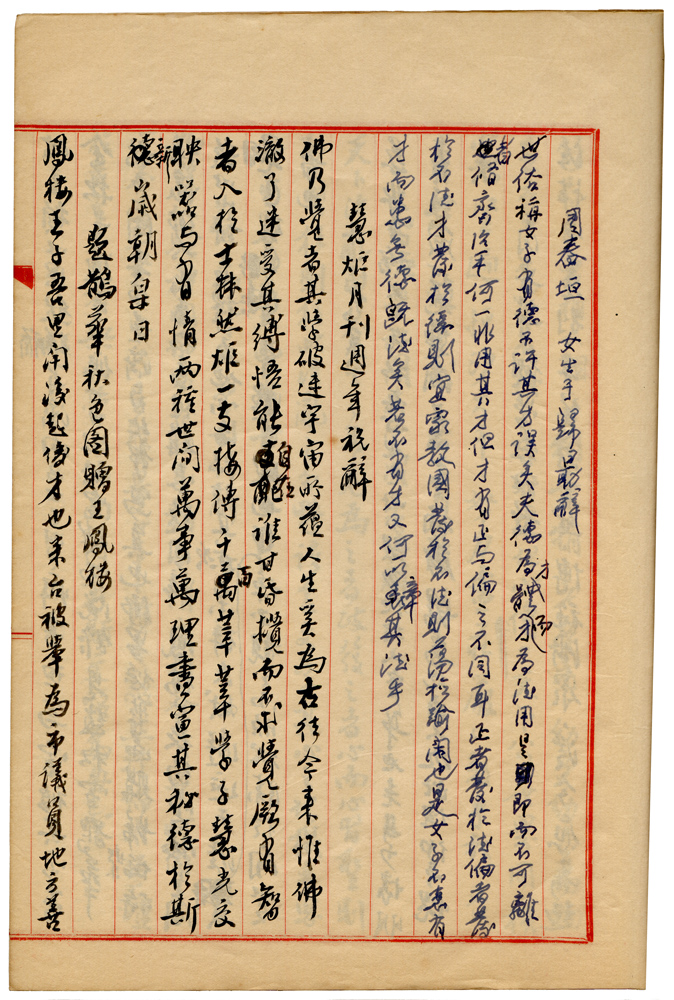 周春垣 女生于歸勗辭
世俗稱女子有德不許其才誤矣夫德為才體而才為德用是即而不可離
者脩齊治平何一非用其才但才有正與偏之不同耳正者發於德偏者發
於不德才發於德則宜家教國發於不德則蕩檢踰閑也是女子不患有
才而患無德既德矣若不有才又何以彰其德乎
慧炬月刊週年祝辭
佛乃覺者其學破迷宇宙所蘊人生奚為古往今來惟佛
澈了迷受其縛悟能自誰甘昏攪而不求覺厥有智
者入於士林然炬一支接傳千百莘莘學子慧光交
映器與有情兩種世間萬事萬理書宣其秘德於斯
新德歲朝日
題鵲華秋色圖贈王鳳樓
鳳樓王子吾里開濟起俊才也來台被舉為市議員地方善